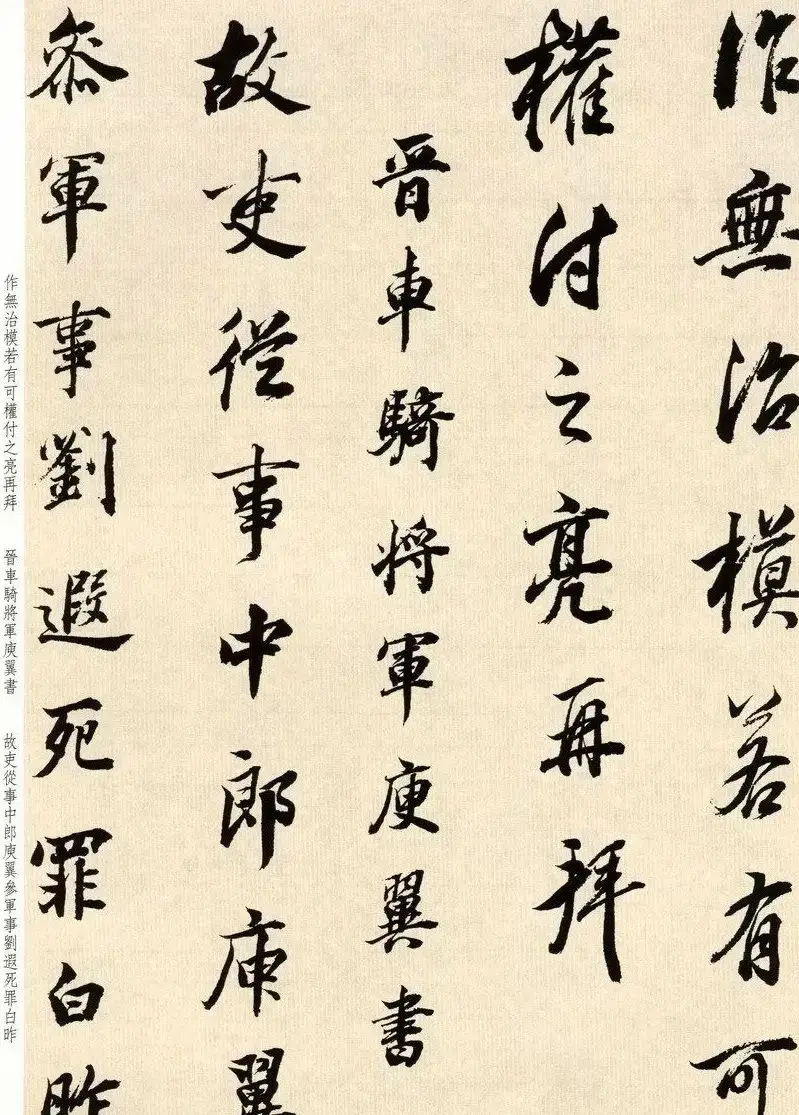 作無治模若有可
權付之亮再拜
晉車騎將軍庾翼書
故吏從事中郎庾翼
叅軍事劉遐死罪白昨
作無治模若有可權付之亮再拜　晉車騎將軍庾翼書　故吏從事中郎庾翼參軍事劉遐死罪白昨